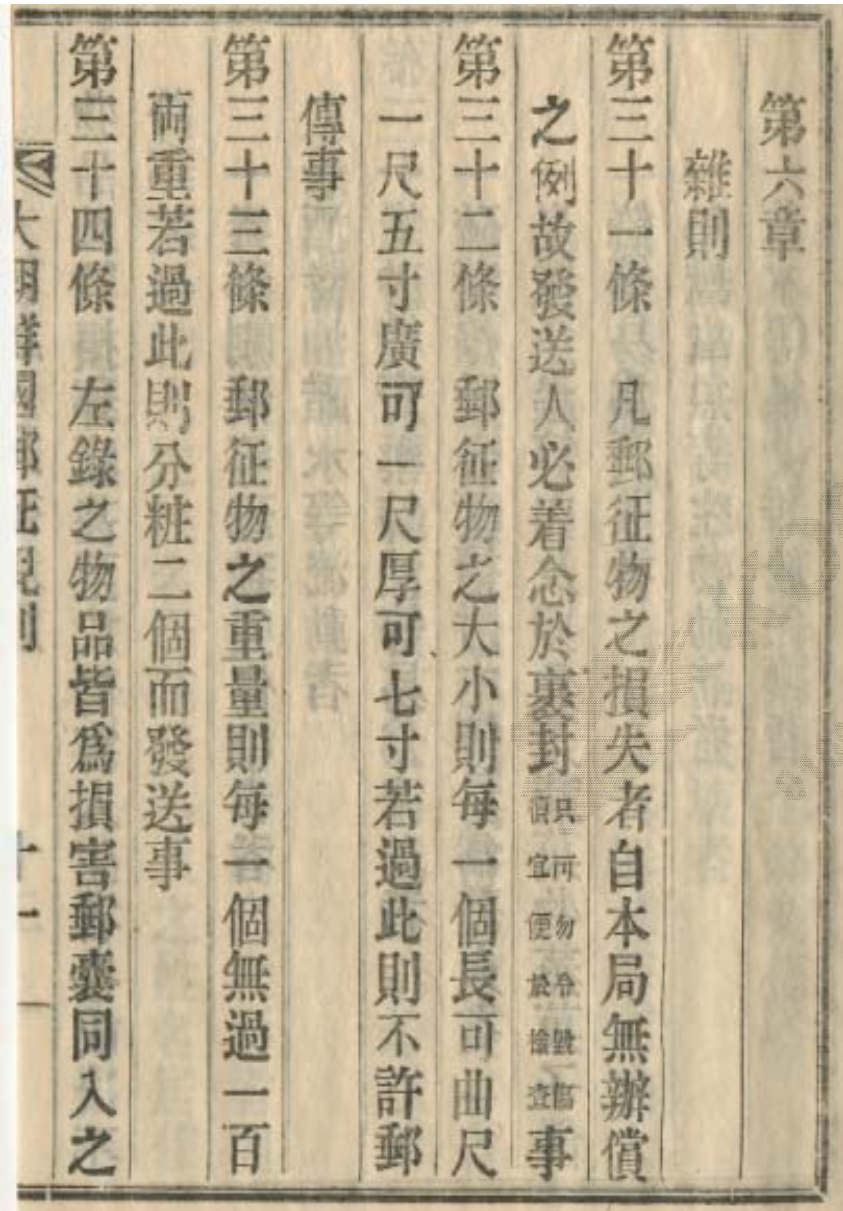 第六章
雜則
第三十一條 凡郵征物之損失者自本局無辦償
之例故發送人必着念於裹封只可勿令毀傷須宜便於撿查事
第三十二條 郵征物之大小則每一個長可曲尺
一尺五寸廣可一尺厚可七寸若過此則不許郵
傳事
第三十三條 郵征物之重量則每一個無過一百
兩重若過此則分粧二個而發送事
第三十四條 左錄之物品皆爲損害郵囊同入之
大朝鮮國郵征規則 十一